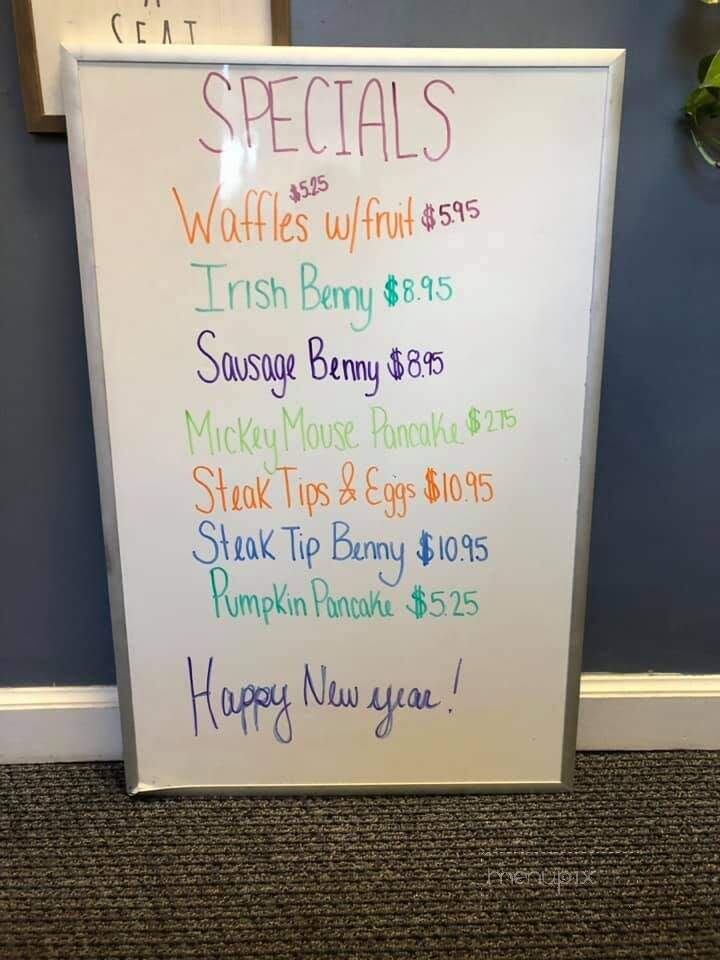 A
SEAT
SPECIALS
$5.25
Waffles w/fruit $5.95
Irish Benny $8.95
Sausage Benny $8.95
Mickey Mouse Pancake $2.75
Steak Tips & Eggs $10.95
Steak Tip Benny $10.95
Pumpkin Pancake $5.25
Happy New year!
menupix